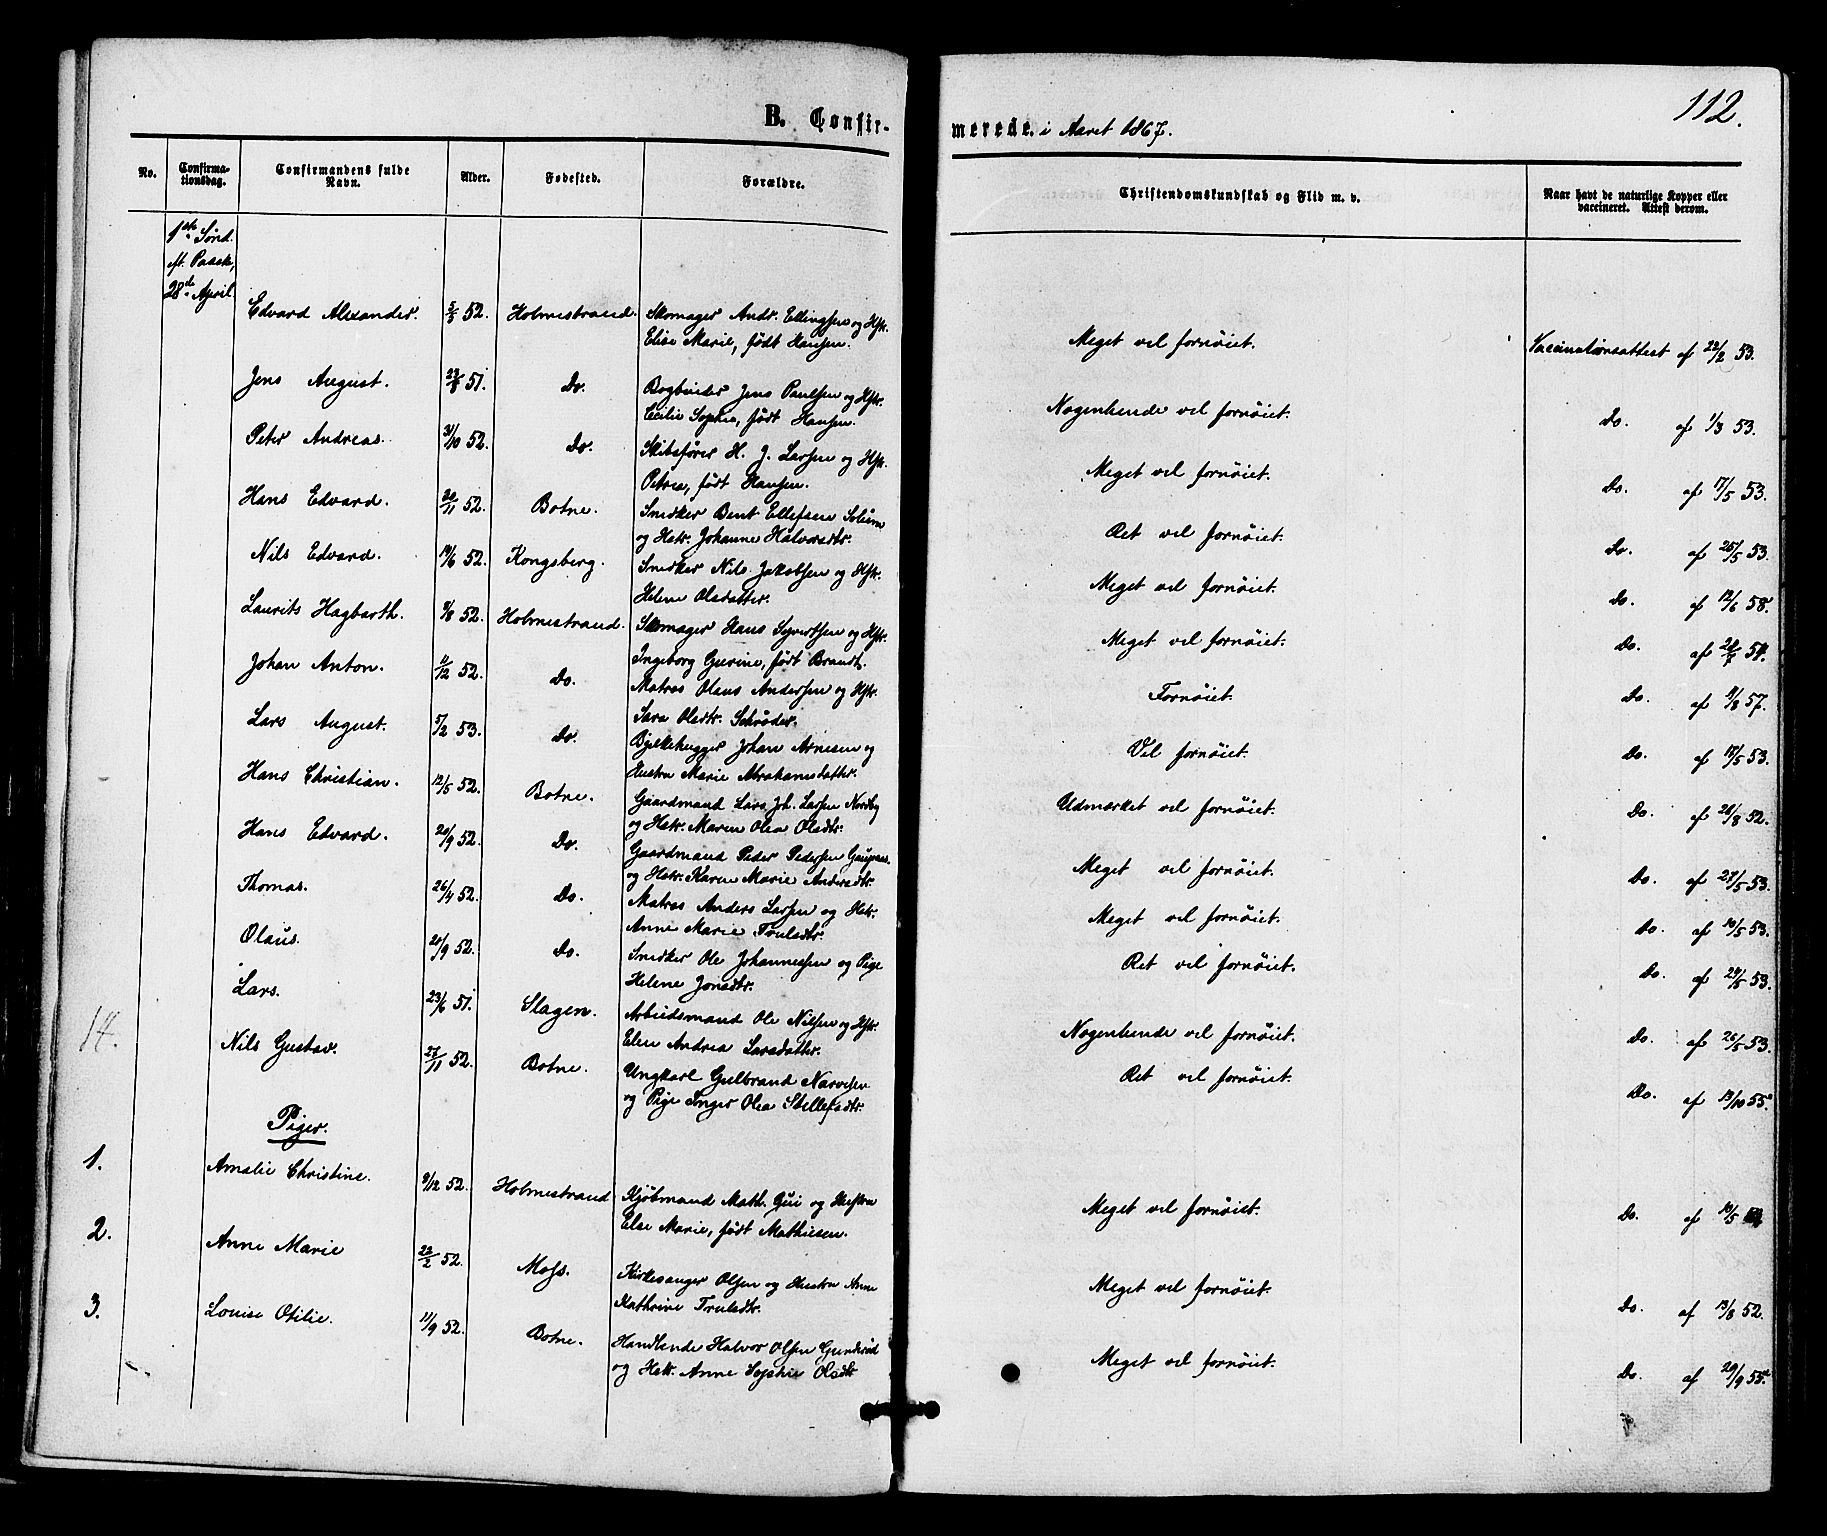 112.
B. Confir-
merede. i Aaret 1867.
No.
Confirma-
tionsdag.
Confirmandens fulde
Navn.
Alder.
Fødested.
Forældre.
Christendomskundskab og Flid m. v.
Naar havt de naturlige Kopper eller
vaccineret. Attest derom.
1ste Sønd.
ft. Paask,
28de April
Edvard Alexander. 5/3 52. Holmestrand. Skomager Andr. Ellingsen og Hstr.
Elise Marie, født Hansen. Meget vel fornøiet. Vaccinationsattest af 22/2 53.
Jens August. 51. Do. Bogbinder Jens Paulsen og Hstr.
Cecilie Sophie, født Hansen. Nogenlunde vel fornøiet. Do. af 1/3 53.
Peter Andreas. 31/10 52. Do. Skibsfører H. J. Larsen og Hstr.
Petrea, født Hansen. Meget vel fornøiet. Do. af 17/5 53.
Hans Edvard. 20/11 52. Botne. Snedker Bent Ellefsen Solum
og Hstr. Johanne Halvorsdtr. Ret vel fornøiet. Do. af 25/5 53.
Nils Edvard. 19/6 52. Kongsberg. Snedker Nils Jakobsen og Hstr.
Helene Olsdatter. Meget vel fornøiet. Do. af 12/6 58.
Laurits Hagbarth. 9/8 52. Holmestrand. Skomager Hans Syvertsen og Hstr.
Ingeborg Gurine, født Brandt. Meget vel fornøiet. Do. af 54.
Johan Anton. 11/12 52. Do. Matros Olaus Andersen og Hstr.
Sara Olsdtr. Schrøder. Fornøiet. Do. af 57.
Lars August. 5/2 53. Do. Bjelkehugger Johan Arnesen og
Hustru Marie Abrahamsdatter. Vel fornøiet. Do. af 17/5 53.
Hans Christian. 12/5 52. Botne. Gaardmand Lars Joh. Larsen Nordby
og Hstr. Maren Olea Olsdtr. Udmærket vel fornøiet. Do. af 28/8 52.
Hans Edvard. 20/9 52. Do. Gaardmand Peder Pedersen
og Hstr. Karen Marie Andersdtr. Meget vel fornøiet. Do. af 27/5 53.
Thomas. 26/4 52. Do. Matros Anders Larsen og Hstr.
Anne Marie Trulsdtr. Meget vel fornøiet. Do. af 10/5 53.
Olaus. 21/9 52. Do. Snedker Ole Johannessen og Pige
Helene Jonsdtr. Ret vel fornøiet. Do. af 24/5 53.
Lars. 23/6 51. Slagen. Arbeidsmand Ole Nilsen og Hstr.
Elen Andrea Larsdatter. Nogenlunde vel fornøiet. Do. af 26/5 53.
14. Nils Gustav. 27/11 52. Botne. Ungkarl Gulbrand Narvesen
og Pige Inger Olea Stillefsdtr. Ret vel fornøiet. Do. af 13/10 55.
Piger.
1. Amalie Christine. 9/12 52. Holmestrand Kjøbmand Math. Gui og Hustru
Else Marie, født Mathiesen. Meget vel fornøiet. Do. af 10/5
2. Anne Marie 22/2 52. Moss. Kirkesanger Olsen og Hustru Anne
Kathrine Trulsdtr. Meget vel fornøiet. Do. af 13/8 52.
3. Louise Otilie. 11/9 52. Botne. Handlende Halvor Olsen Gunderud
og Hstr. Anne Sophie Olsdtr Meget vel fornøiet. Do. af 20/9 55.